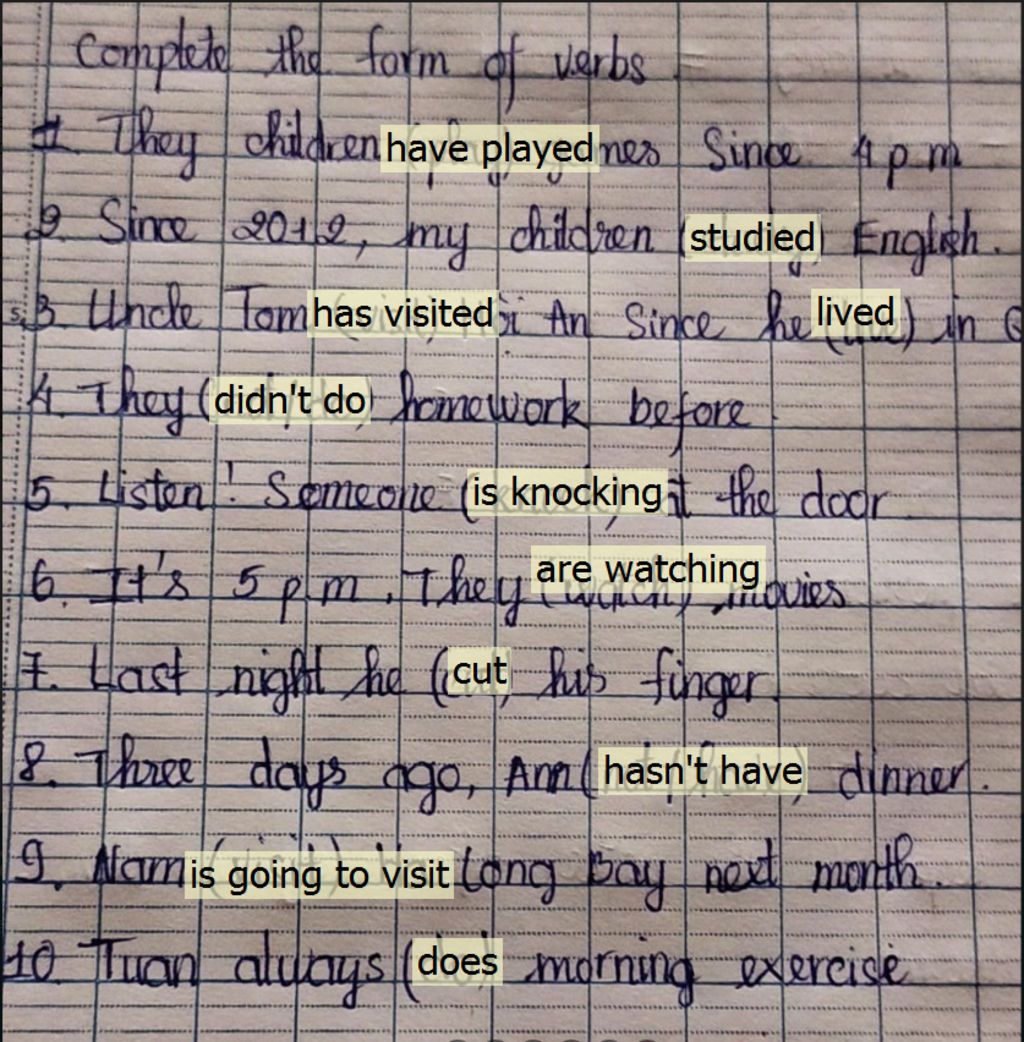 Complete the form of verbs
1. They children have played mes Since 4 p m
2. Since 2012, my children (studied) English.
3. Uncle Tom has visited i An Since he lived) in
4. They (didn't do) homework before.
5. Listen! Someone (is knocking at the door
6. It's 5 p m. They are watching movies
7. Last night he (cut his finger.
8. Three days ago, Ann (hasn't have) dinner.
9. Nam is going to visit Long Bay next month.
10 Tuan always (does morning exercise